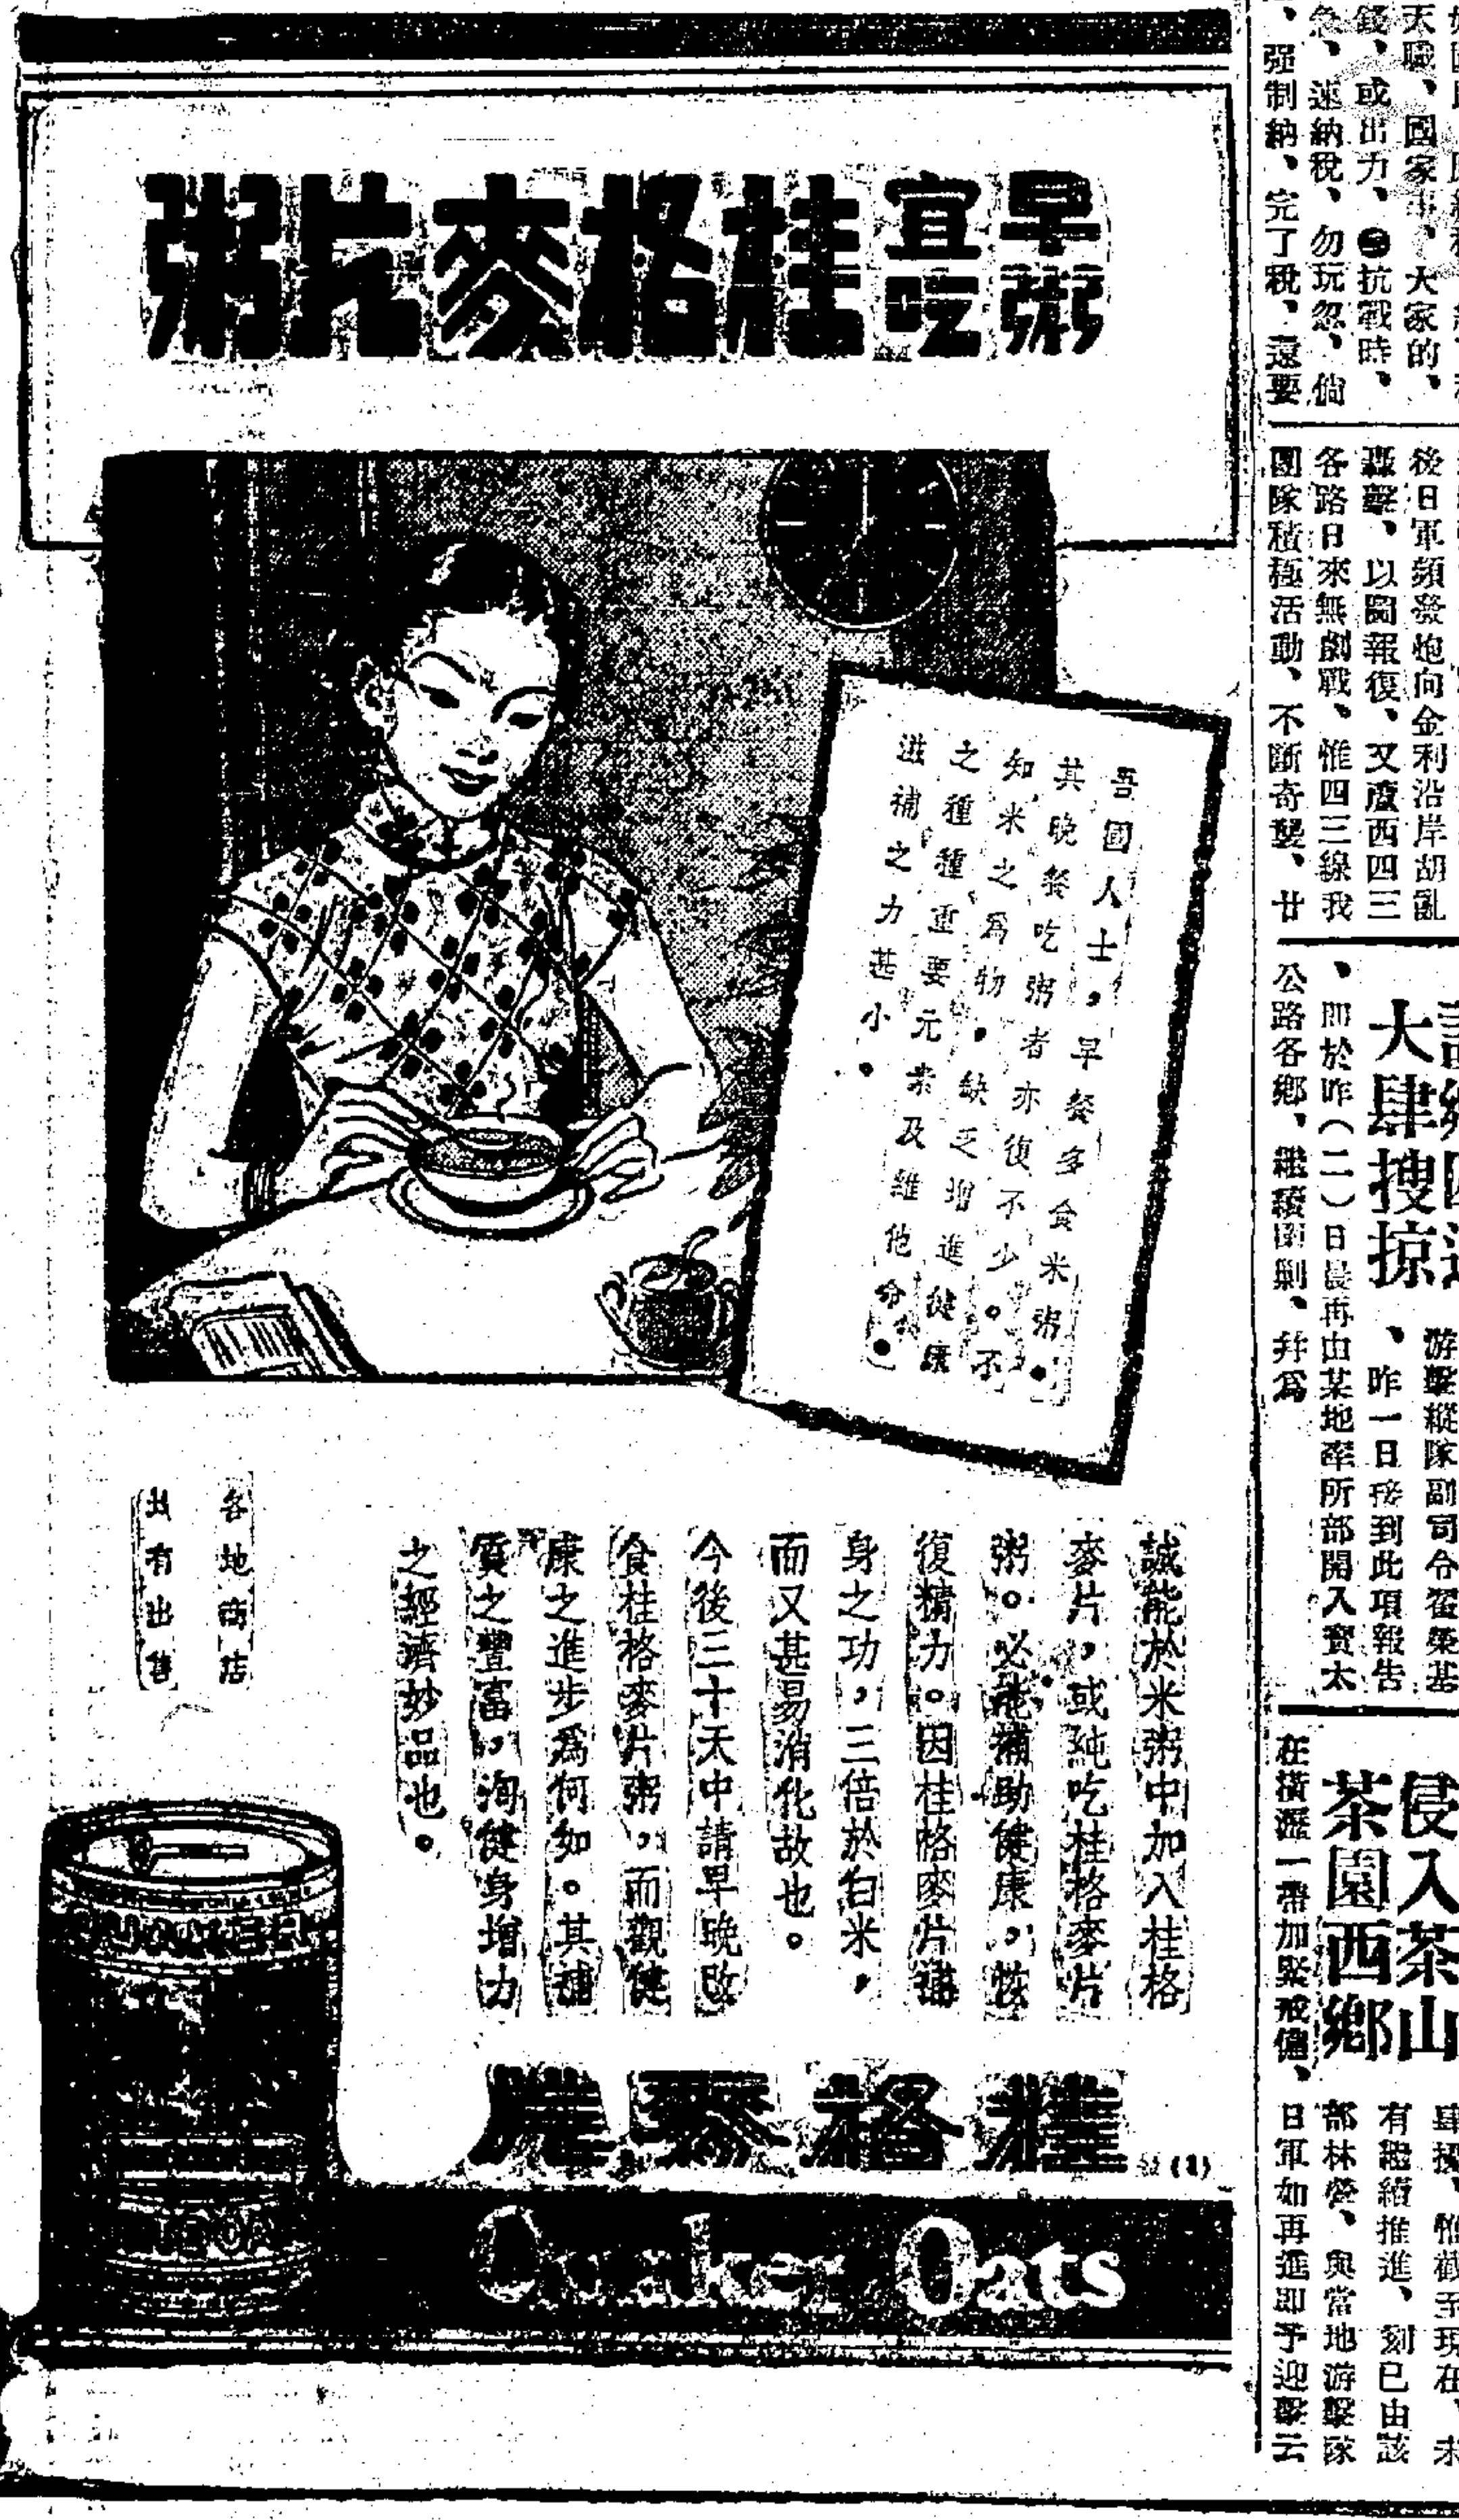 早粥
宜吃
桂格麥片粥
吾國人士，早餐多食米粥。
其晚餐吃粥者亦復不少。不
知米之爲物，缺乏增進健康
之種種重要元素及維他命。
滋補之力甚小。
誠能於米粥中加入桂格
麥片，或純吃桂格麥片
粥。必能補助健康，恢
復精力。因桂格麥片補
身之功，三倍於白米，
而又甚易消化故也。
今後三十天中請早晚改
食桂格麥片粥，而觀健
康之進步爲何如。其補
質之豐富，洵健身增力
之經濟妙品也。
各地商店
出有出售
桂格麥片
(1)
Quaker Oats
QUAKER
天職、國家事、大家的、
錢、或出力、㊁抗戰時、
急、速納稅、勿玩忽、倘
、强制納、完了稅、還要
後日軍頻發炮向金利沿岸胡亂
轟擊、以圖報復、又蘆西四三
各路日來無劇戰、惟四三線我
團隊積極活動、不斷奇襲、廿
大肆搜掠
游擊縱隊副司令翟榮基
、昨一日接到此項報告
、即於昨（二）日晨再由某地率所部開入寶太
公路各鄉、繼續圍剿、幷爲
侵入茶山
茶園西鄉
在橫瀝一帶加緊戒備、
有繼續推進、刻已由該
部林營、與當地游擊隊
日軍如再進即予迎擊云